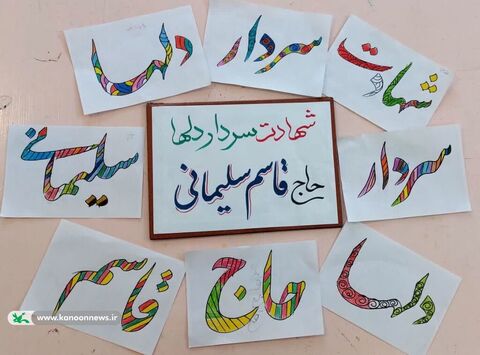 دلها
سردار
شهادت
سلیمانی
شهادت سردار دلها
حاج قاسم سلیمانی
سردار
قاسم
حاج
دلها
www.kanoonnews.ir